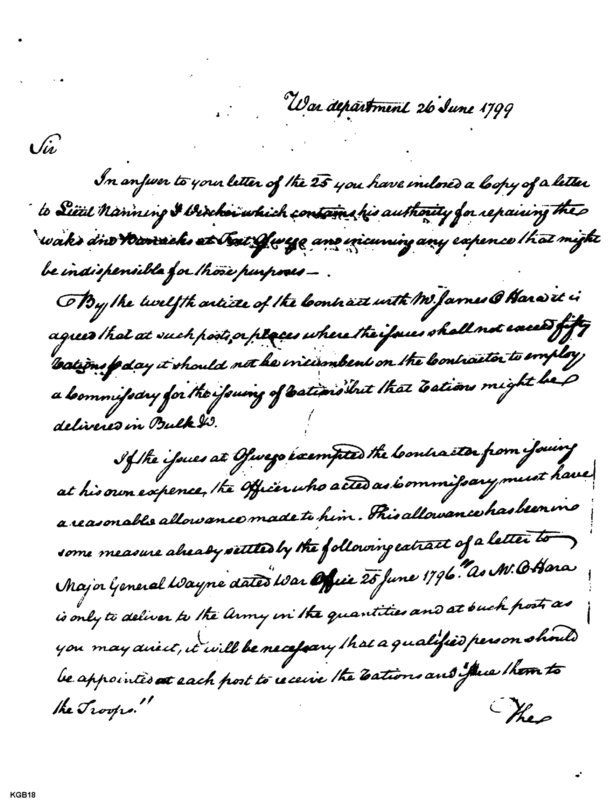 War department 26 June 1799
Sir
In answer to your letter of the 25 you have inclosed a Copy of a letter
to Lieut Nanning J Visscher which contains his authority for repairing the
works and Barracks at Fort Oswego and incurring any expence that might
be indispensible for those purposes —
By the twelfth article of the Contract with Mr James O Hara it is
agreed that at such posts, or places where the issues shall not exceed fifty
rations p day it should not be incumbent on the Contractor to employ
a Commissary for the issuing of rations but that rations might be
delivered in Bulk &c.
If the issues at Oswego exempted the Contractor from issuing
at his own expence, the Officer who acted as Commissary must have
a reasonable allowance made to him. This allowance has been in
some measure already settled by the following extract of a letter to
Major General Wayne dated War Office 25 June 1796 " As Mr. O Hara
is only to deliver to the Army in the quantities and at such posts as
you may direct, it will be necessary that a qualified person should
be appointed at each post to receive the rations and issue them to
the Troops."
The
KGB18